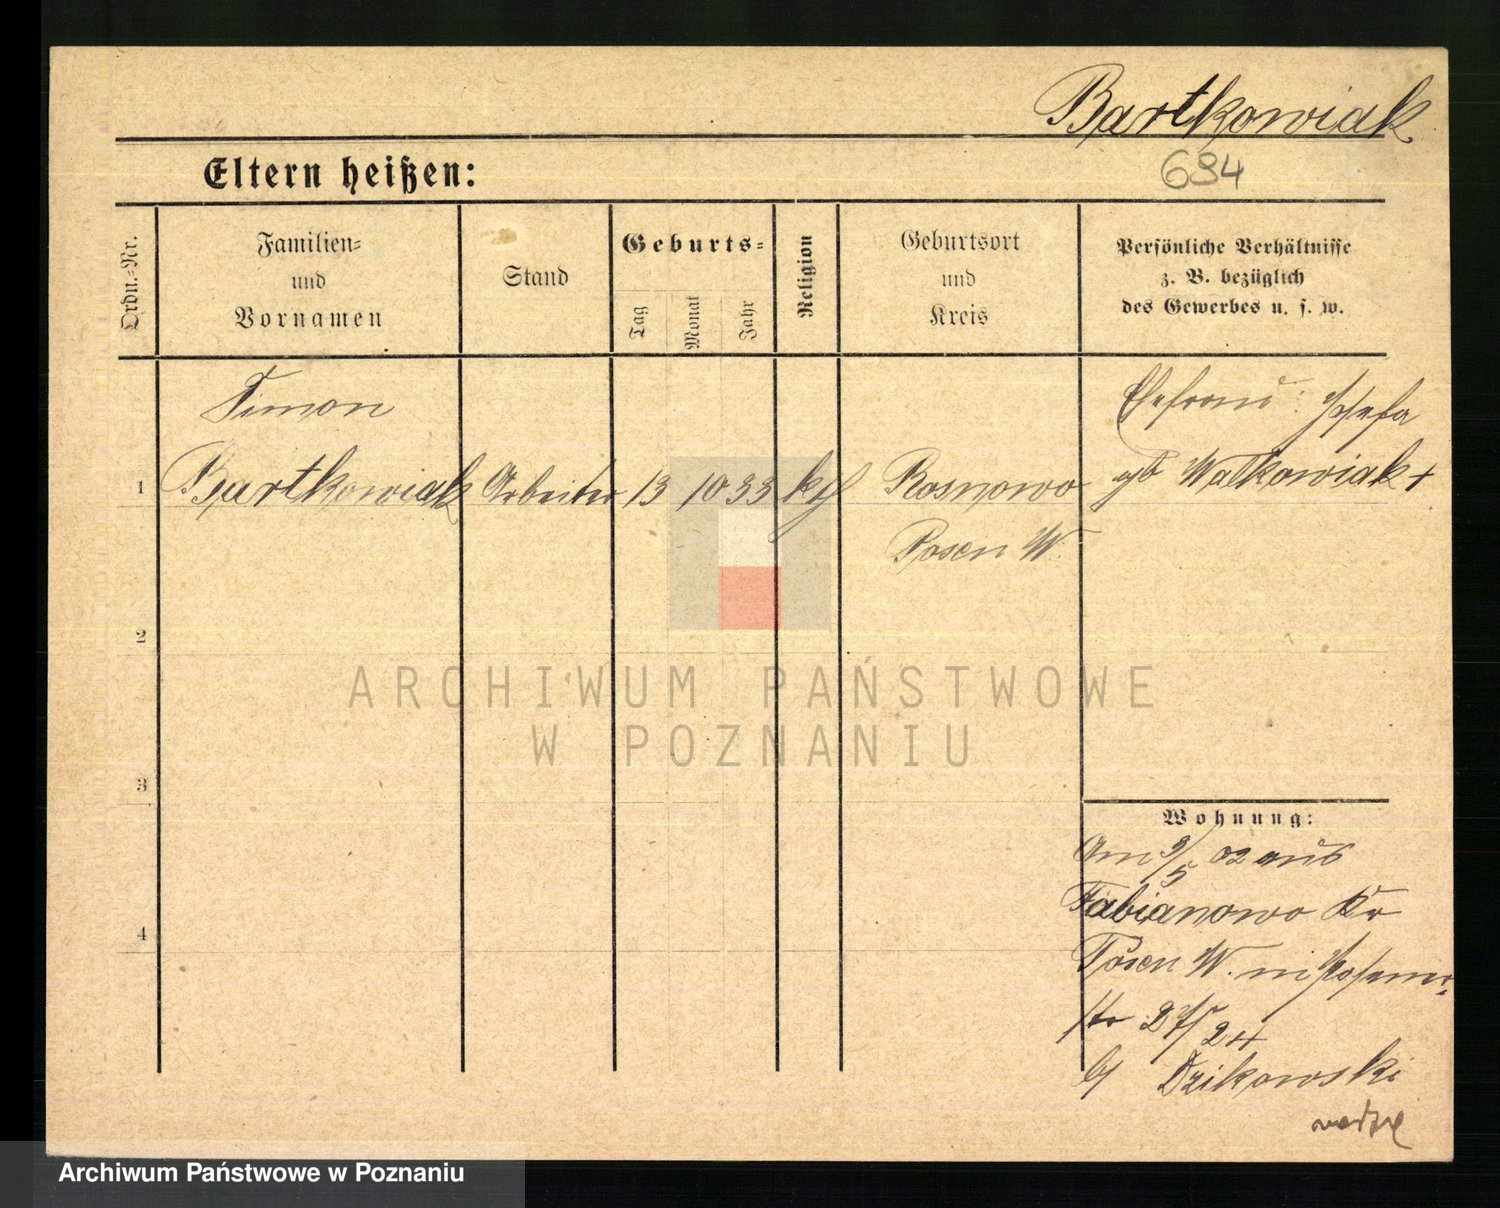 Bartkowiak
Eltern heißen:
694
Ordn.-Nr.
Familien-
und
Vornamen
Stand
Geburts-
Tag
Monat
Jahr
Religion
Geburtsort
und
Kreis
Persönliche Verhältnisse
z. B. bezüglich
des Gewerbes u. s. w.
Simon
Ehefrau: Josefa
1 Bartkowiak Arbeiter 13 10 33 kth Rosnowo
gb Walkowiak +
Posen W.
2
ARCHIWUM PAŃSTWOWE
W POZNANIU
3
Wohnung:
Am 9/5 02 aus
Fabianowo Kr
Posen W. in
str 27/24
b/ Dzikowski
4
Archiwum Państwowe w Poznaniu